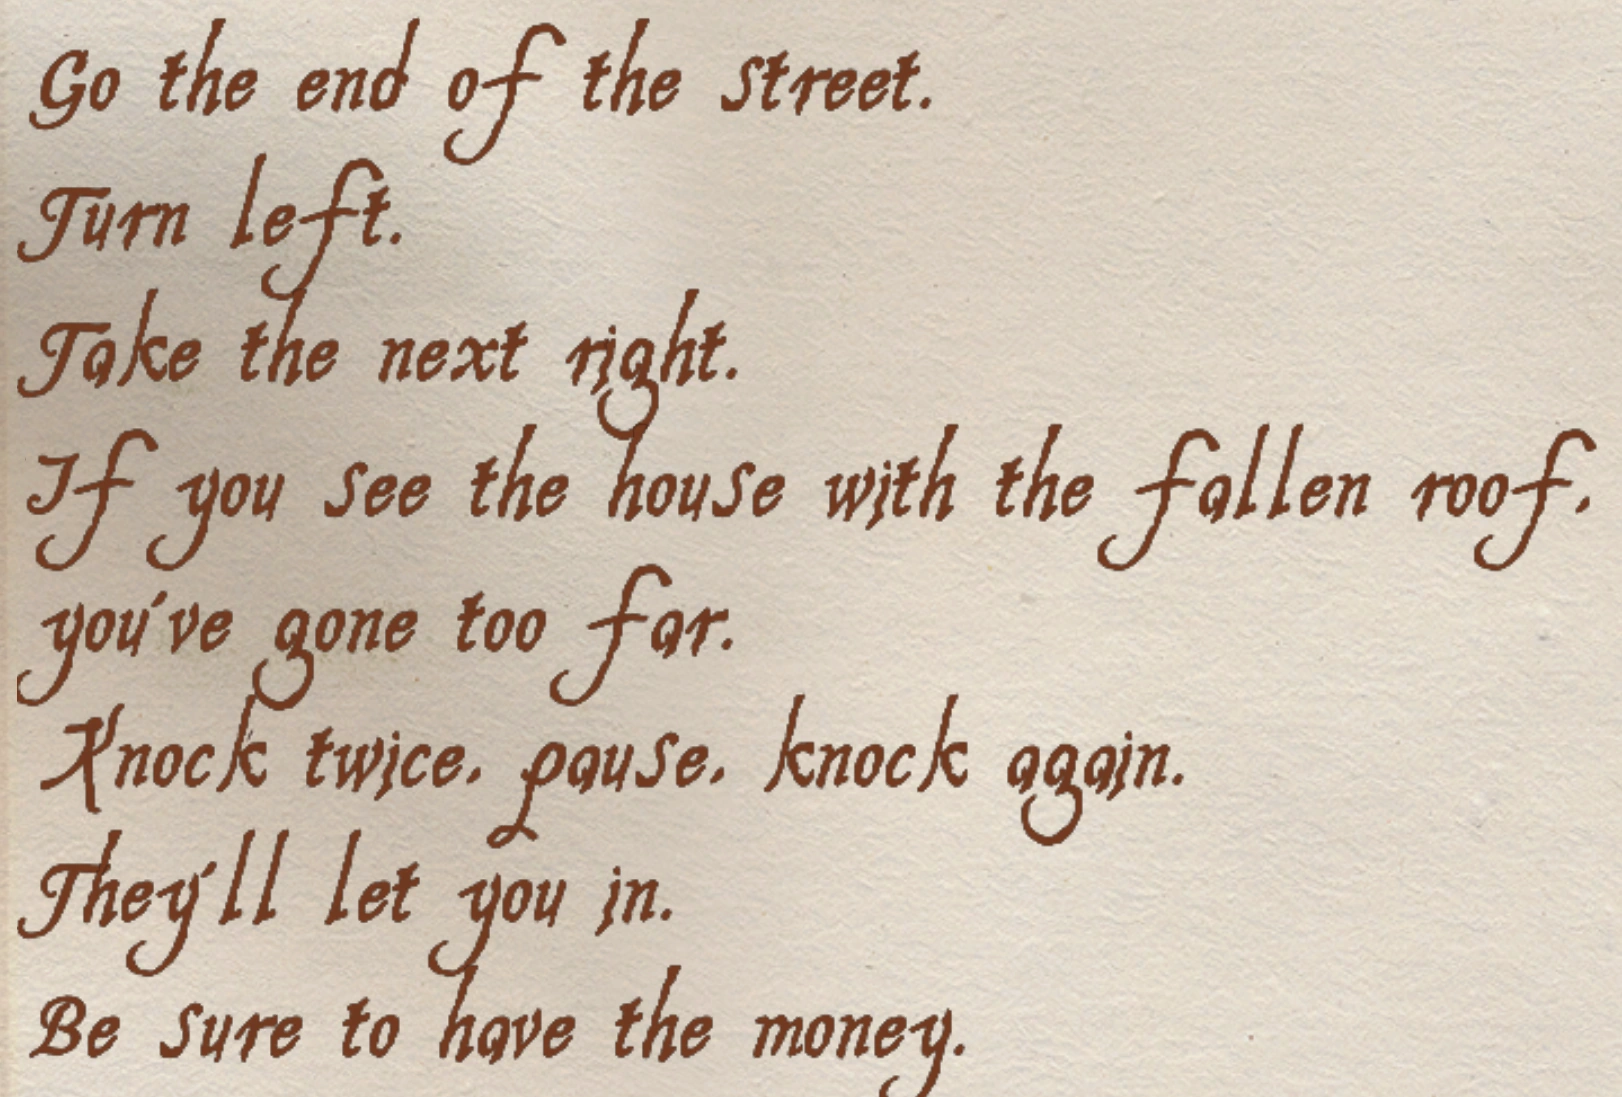 Go the end of the street.
Turn left.
Take the next right.
If you see the house with the fallen roof,
you've gone too far.
Knock twice, pause, knock again.
They'll let you in.
Be sure to have the money.